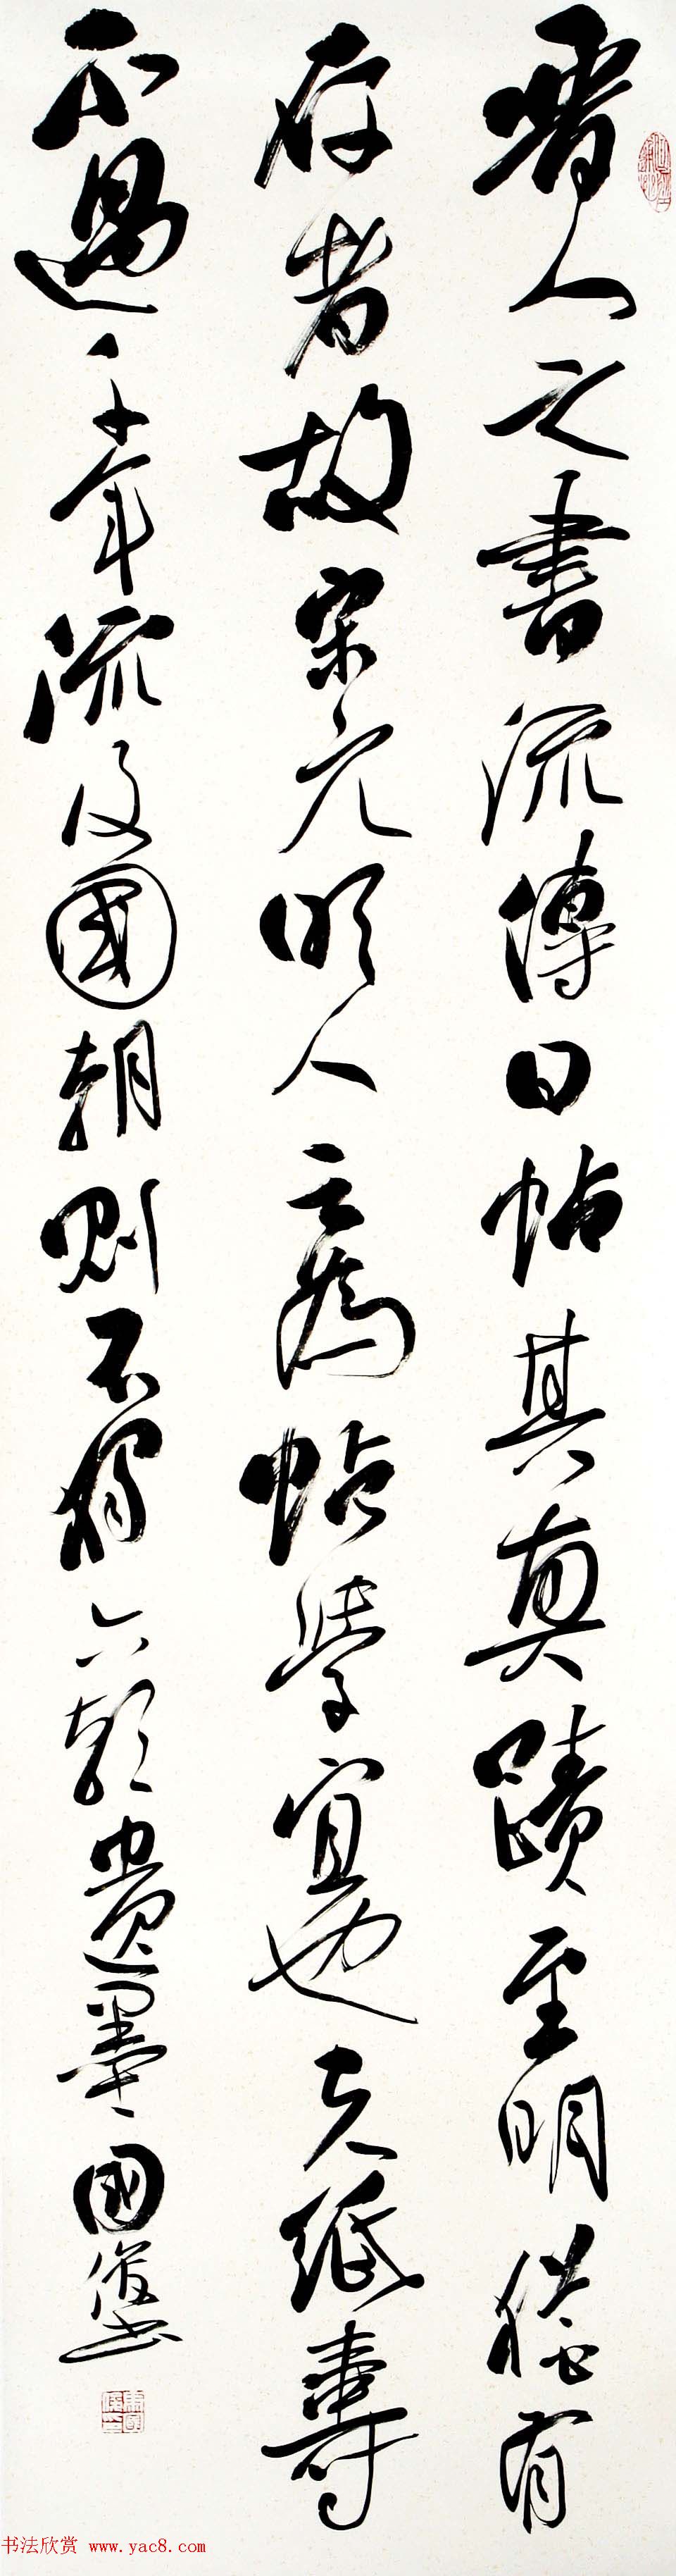 晉人之書流傳曰帖其真蹟至明猶有
存者故宋元明人之為帖學宜也夫紙壽
不過千年流及國朝則不獨六朝遺墨國俊書
书法欣赏 www.yac8.com